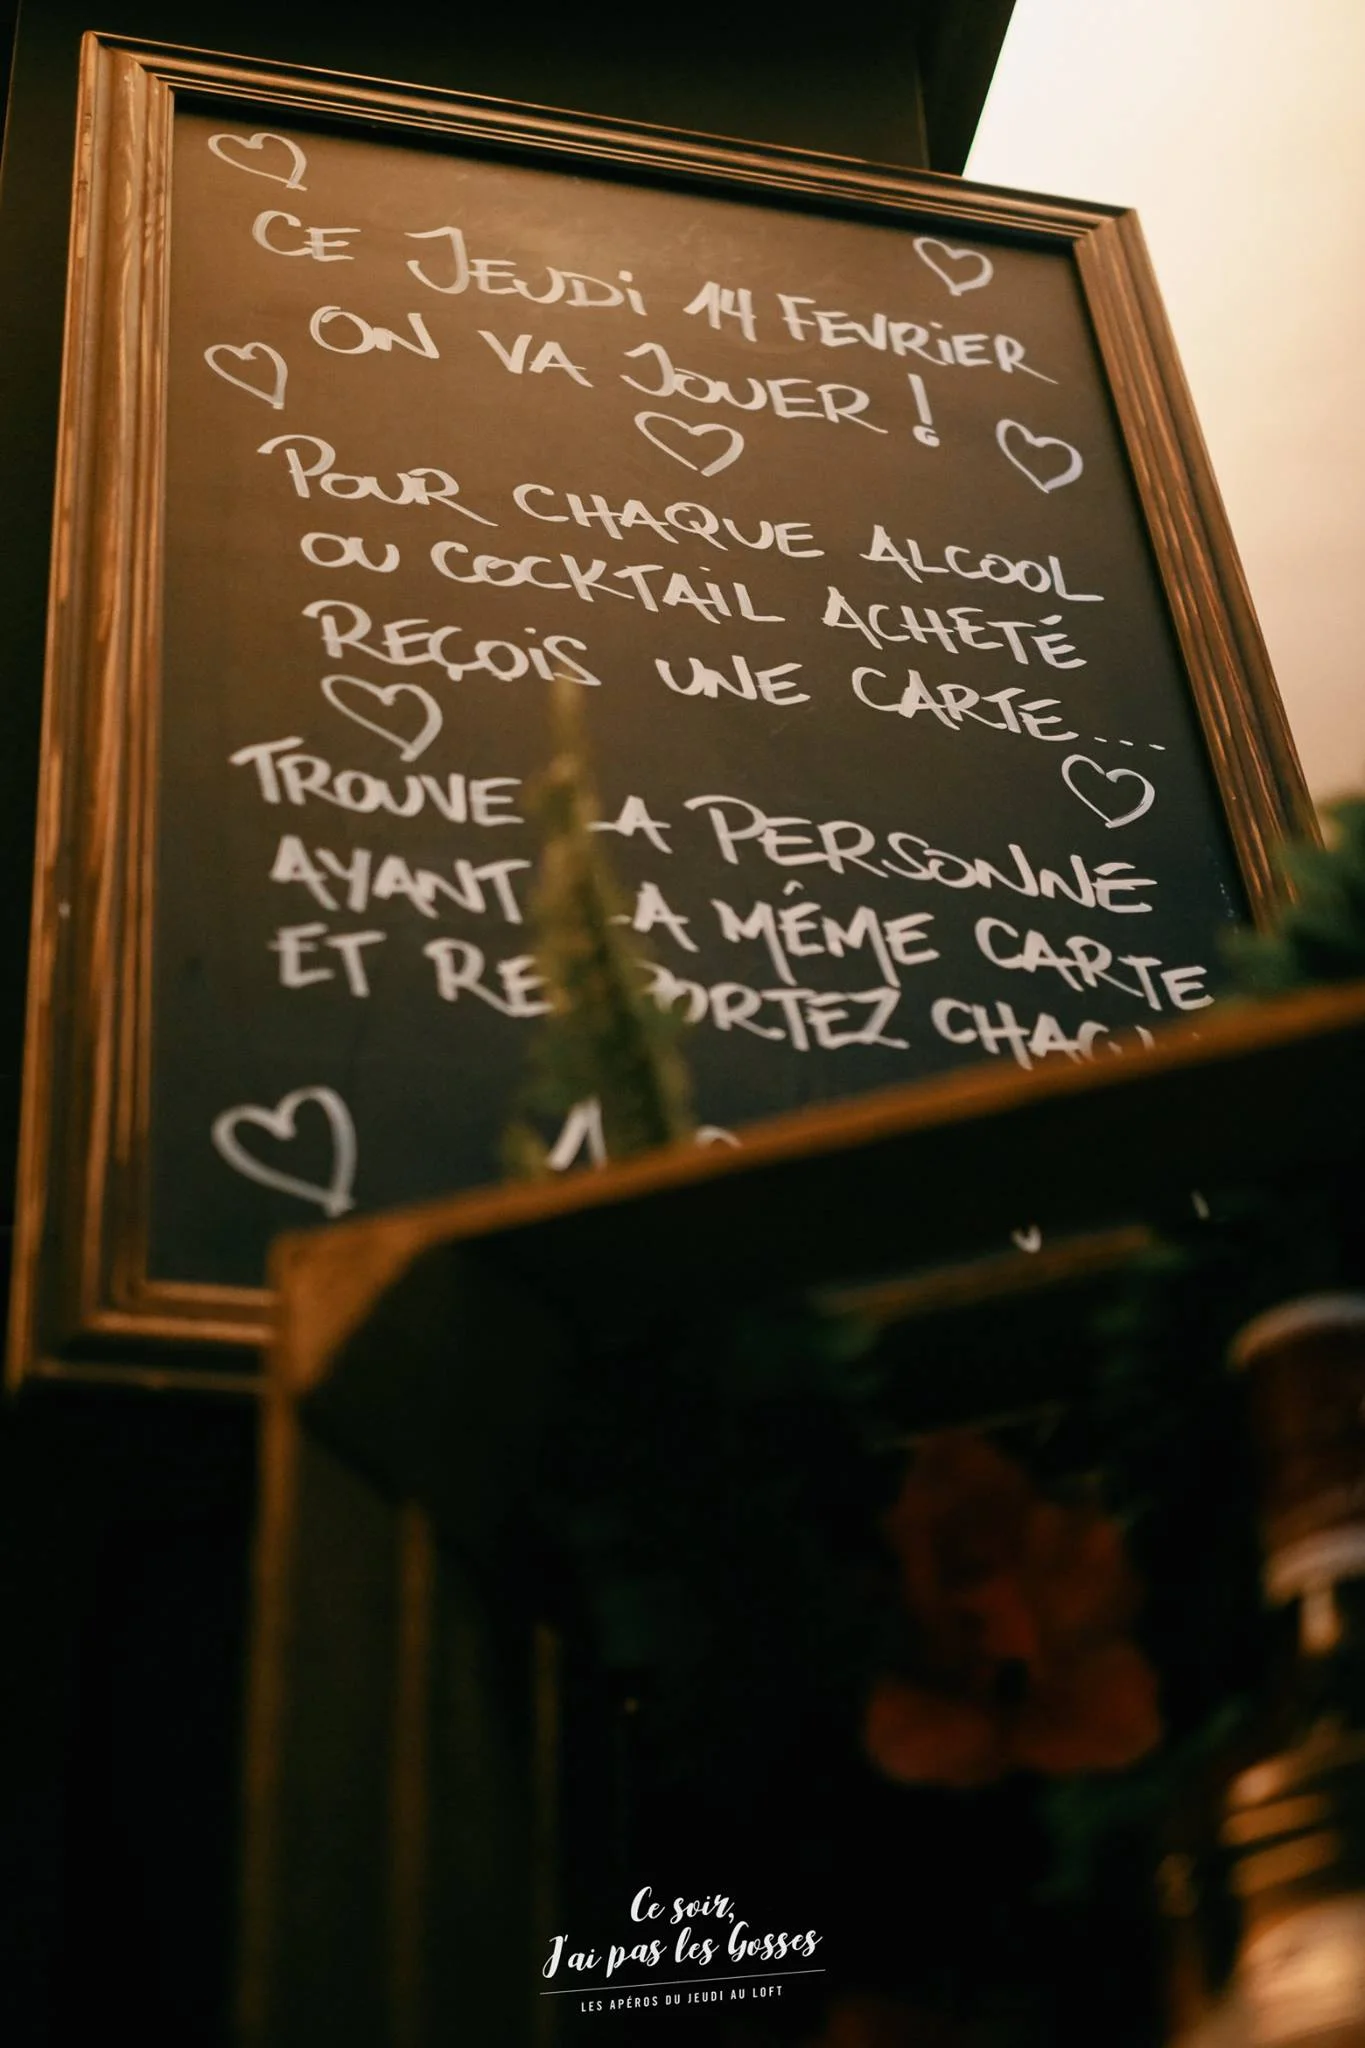 CE JEUDI 14 FEVRIER
ON VA JOUER !
POUR CHAQUE ALCOOL
OU COCKTAIL ACHETÉ
REÇOIS UNE CARTE...
TROUVE LA PERSONNE
AYANT LA MÊME CARTE
ET REMPORTEZ
Ce soir,
J'ai pas les Gosses
LES APÉROS DU JEUDI AU LOFT